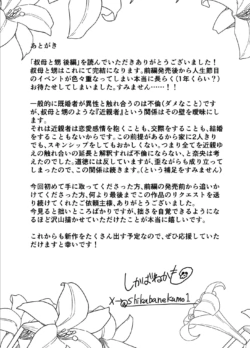 あとがき
「叔母と甥 後編」を読んでいただきありがとうございました!
叔母と甥はこれにて完結になります。前編発売後から人生節目
のイベントが色々重なってしまい本当に長らく(1年くらい?)
お待たせしてしまいました。すみません……!!
一般的に既婚者が異性と触れ合うのは不倫(ダメなこと)です
が、叔母と甥のような『近親者』という関係はその壁を曖昧にし
ます。
それは近親者は恋愛感情を抱くことも、交際をすることも、結婚を
することもないからです。この前提があるから家に2人きりで
も、スキンシップをしてもおかしくない、つまり全てを近親ゆ
えの触れ合いの延長と解釈すれば不倫にならない、と忠央は考
えてました。道徳には反していますが、歪ながらも成り立って
しまったので、この関係は続きます。(という補足をすみません)
今回初めて手に取ってくださった方、前編の発売前から追いか
けてくださった方、何より最後までこの作品のリクエストを送
り続けてくれたご依頼主様、ありがとうございました。
今見ると拙いところばかりですが、拙さを自覚できるようにな
るほど沢山描かせていただけたことが本当に嬉しいです。
これからも新作をたくさん出す予定なので、ぜひ応援していた
だけますと幸いです!
しかばねかも
X→@shikabanekamo1